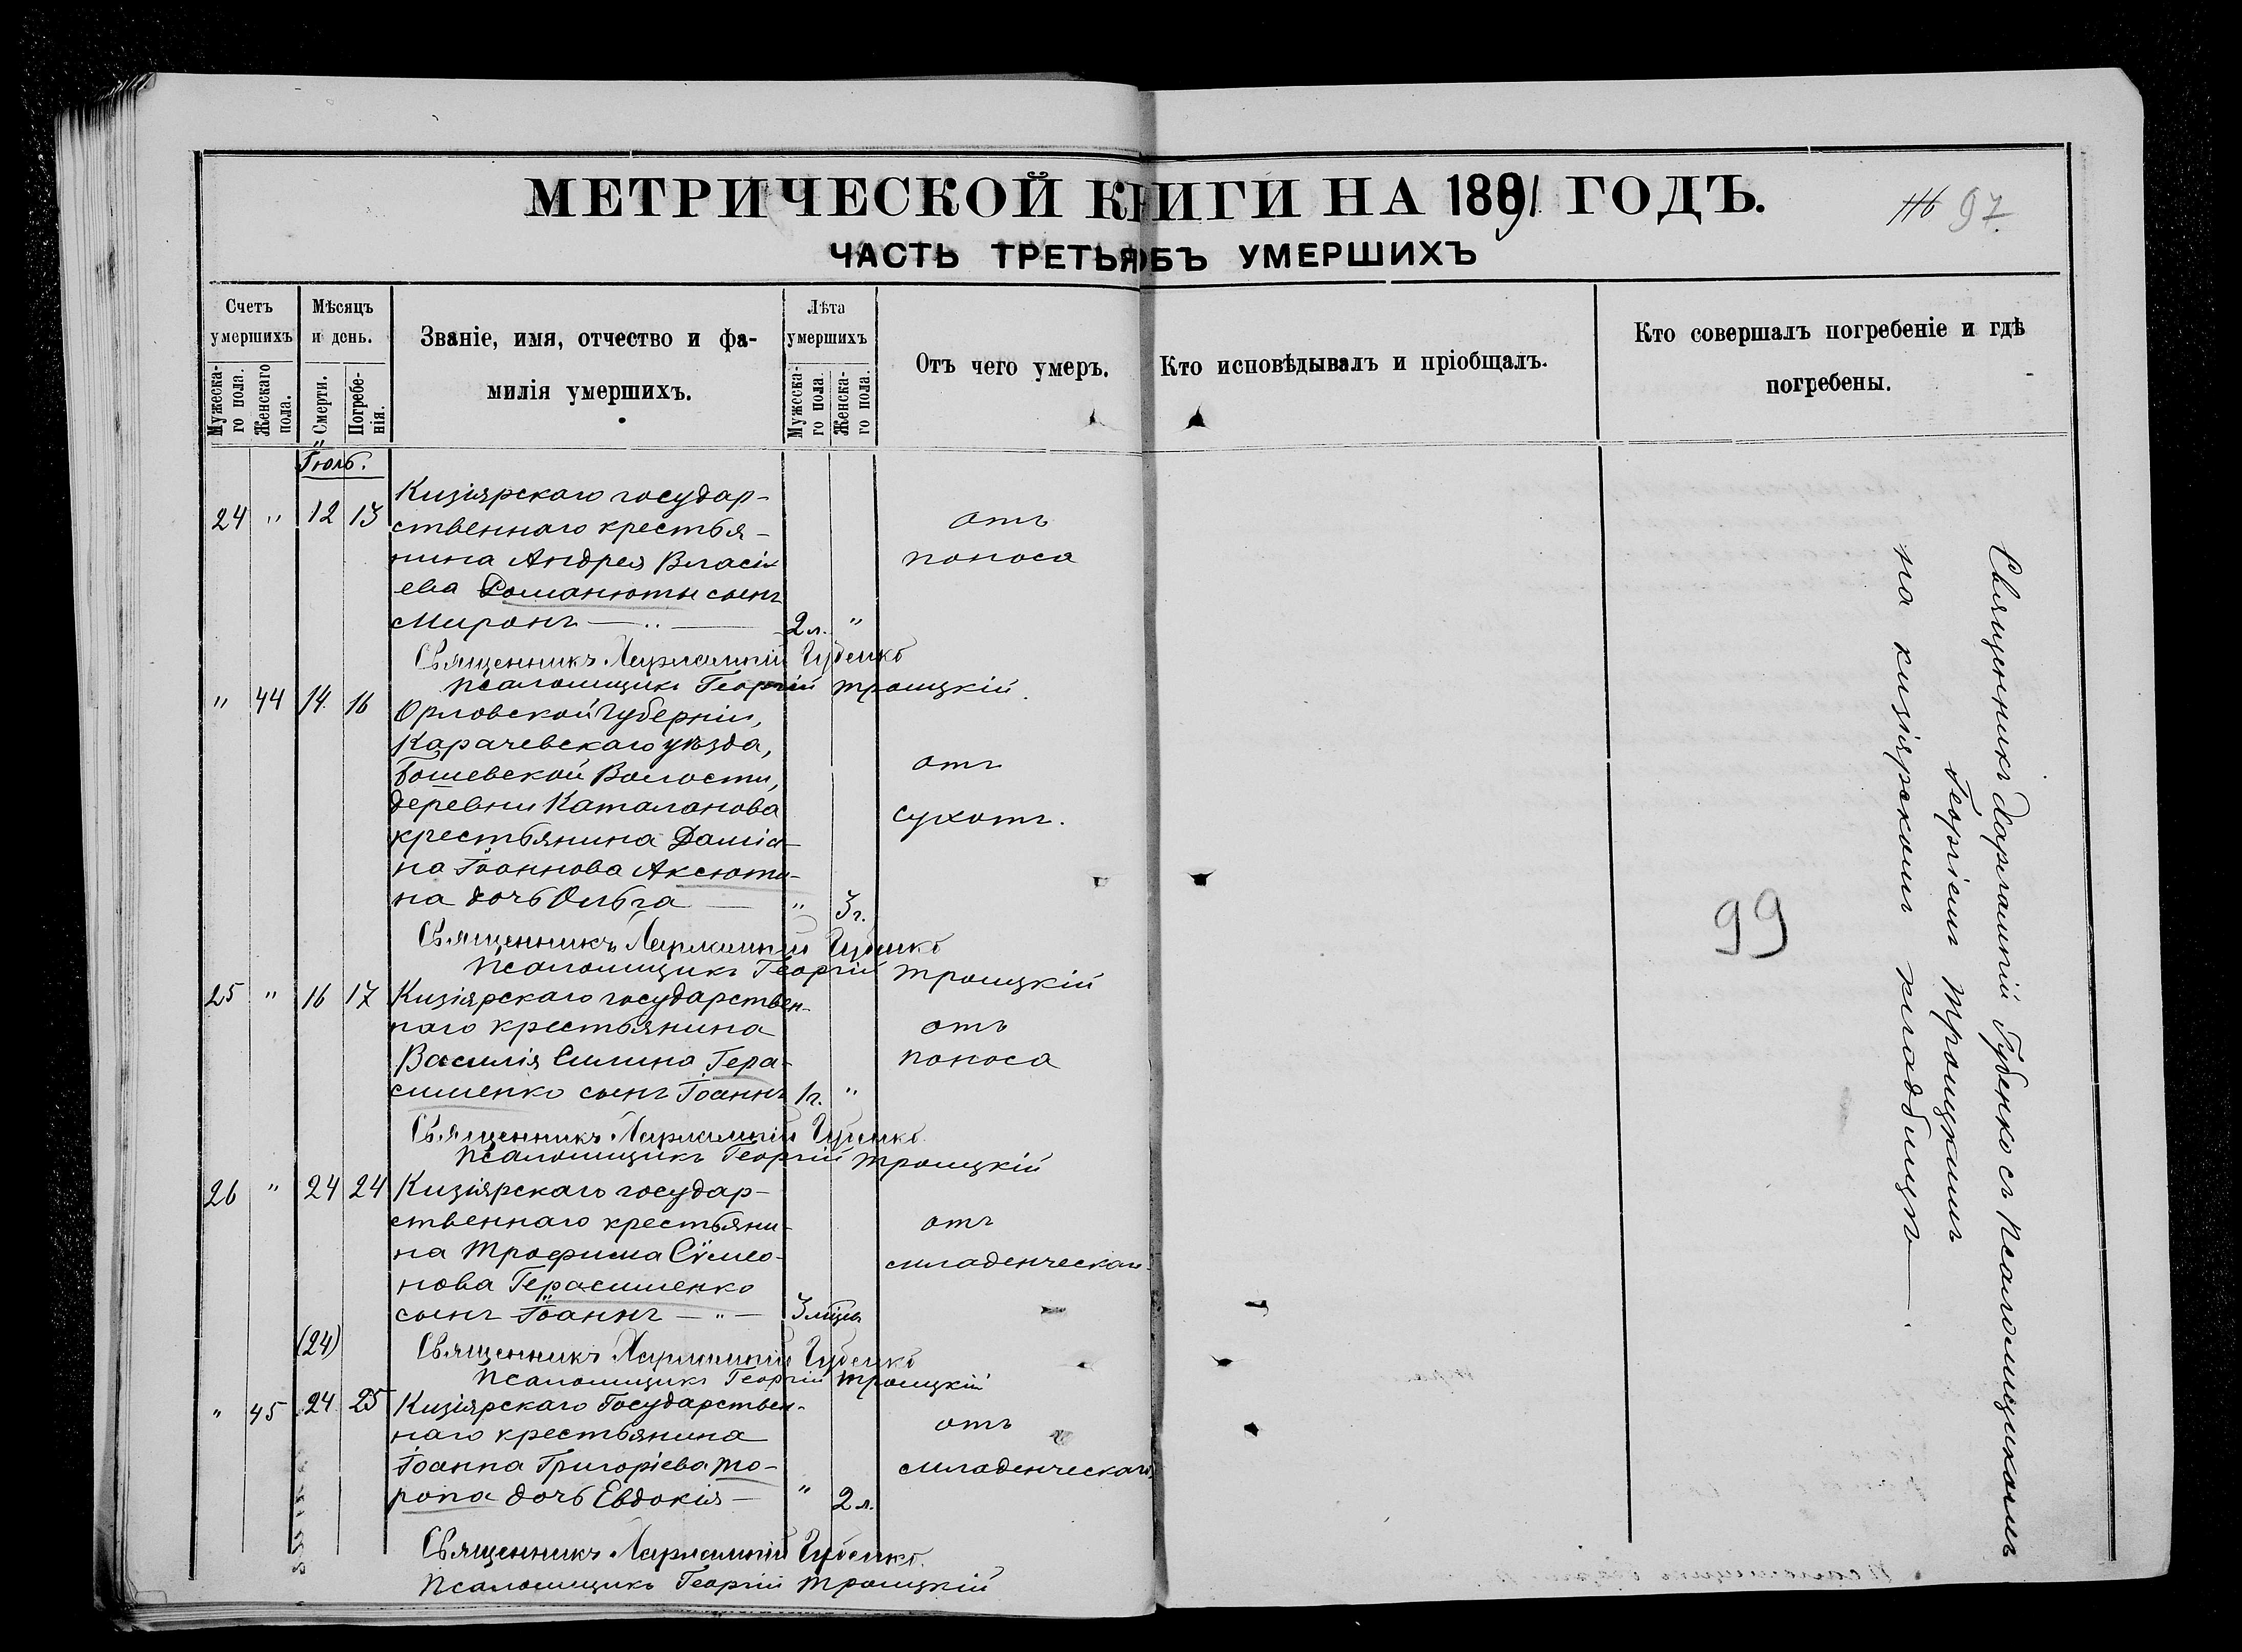 МЕТРИЧЕСКОЙ КНИГИ НА 1891 ГОДЪ.
116 97.
ЧАСТЬ ТРЕТЬЯ ОБЪ УМЕРШИХЪ
Счетъ умершихъ
Мужескаго пола.
Женскаго пола.
Мѣсяцъ и день.
Смерти.
Погребенія.
Званіе, имя, отчество и фамилія умершихъ.
Лѣта умершихъ
Мужескаго пола.
Женскаго пола.
Отъ чего умеръ.
Кто исповѣдывалъ и пріобщалъ.
Кто совершалъ погребеніе и гдѣ погребены.
Іюль.
24 " 12 13
Кизіярскаго государ-
ственнаго крестья-
нина Андрея Власі-
ева Романюты сынъ
Миронъ 2 л. "
отъ
поноса
Священникъ Харлампій Губенко
Псаломщикъ Георгій Троицкій.
" 44 14 16
Орловской Губерніи,
Карачевскаго уѣзда,
Бошевской Волости,
деревни Каталанова
крестьянина Даміа-
на Іоаннова Аксюти-
на дочь Ольга " 3 г.
отъ
сухотъ.
Священникъ Харлампій Губенко
Псаломщикъ Георгій Троицкій
25 " 16 17
Кизіярскаго государствен-
наго крестьянина
Василія Силина Гера-
сименко сынъ Іоаннъ 1 г. "
отъ
поноса
Священникъ Харлампій Губенко
Псаломщикъ Георгій Троицкій
26 " 24 24
Кизіярскаго государ-
ственнаго крестьяни-
на Трофима Сѵмео-
нова Герасименко
сынъ Іоаннъ 3 мѣсц.
отъ
младенческой
(24)
Священникъ Харлампій Губенко
Псаломщикъ Георгій Троицкій
" 45 24 25
Кизіярскаго Государствен-
наго крестьянина
Іоанна Григоріева То-
ропа дочь Евдокія " 2 л.
отъ
младенческаго
Священникъ Харлампій Губенко.
Псаломщикъ Георгій Троицкій
Священникъ Харлампій Губенко съ Псаломщикомъ
Георгіемъ Троицкимъ
на кизіярскомъ кладбищѣ
99